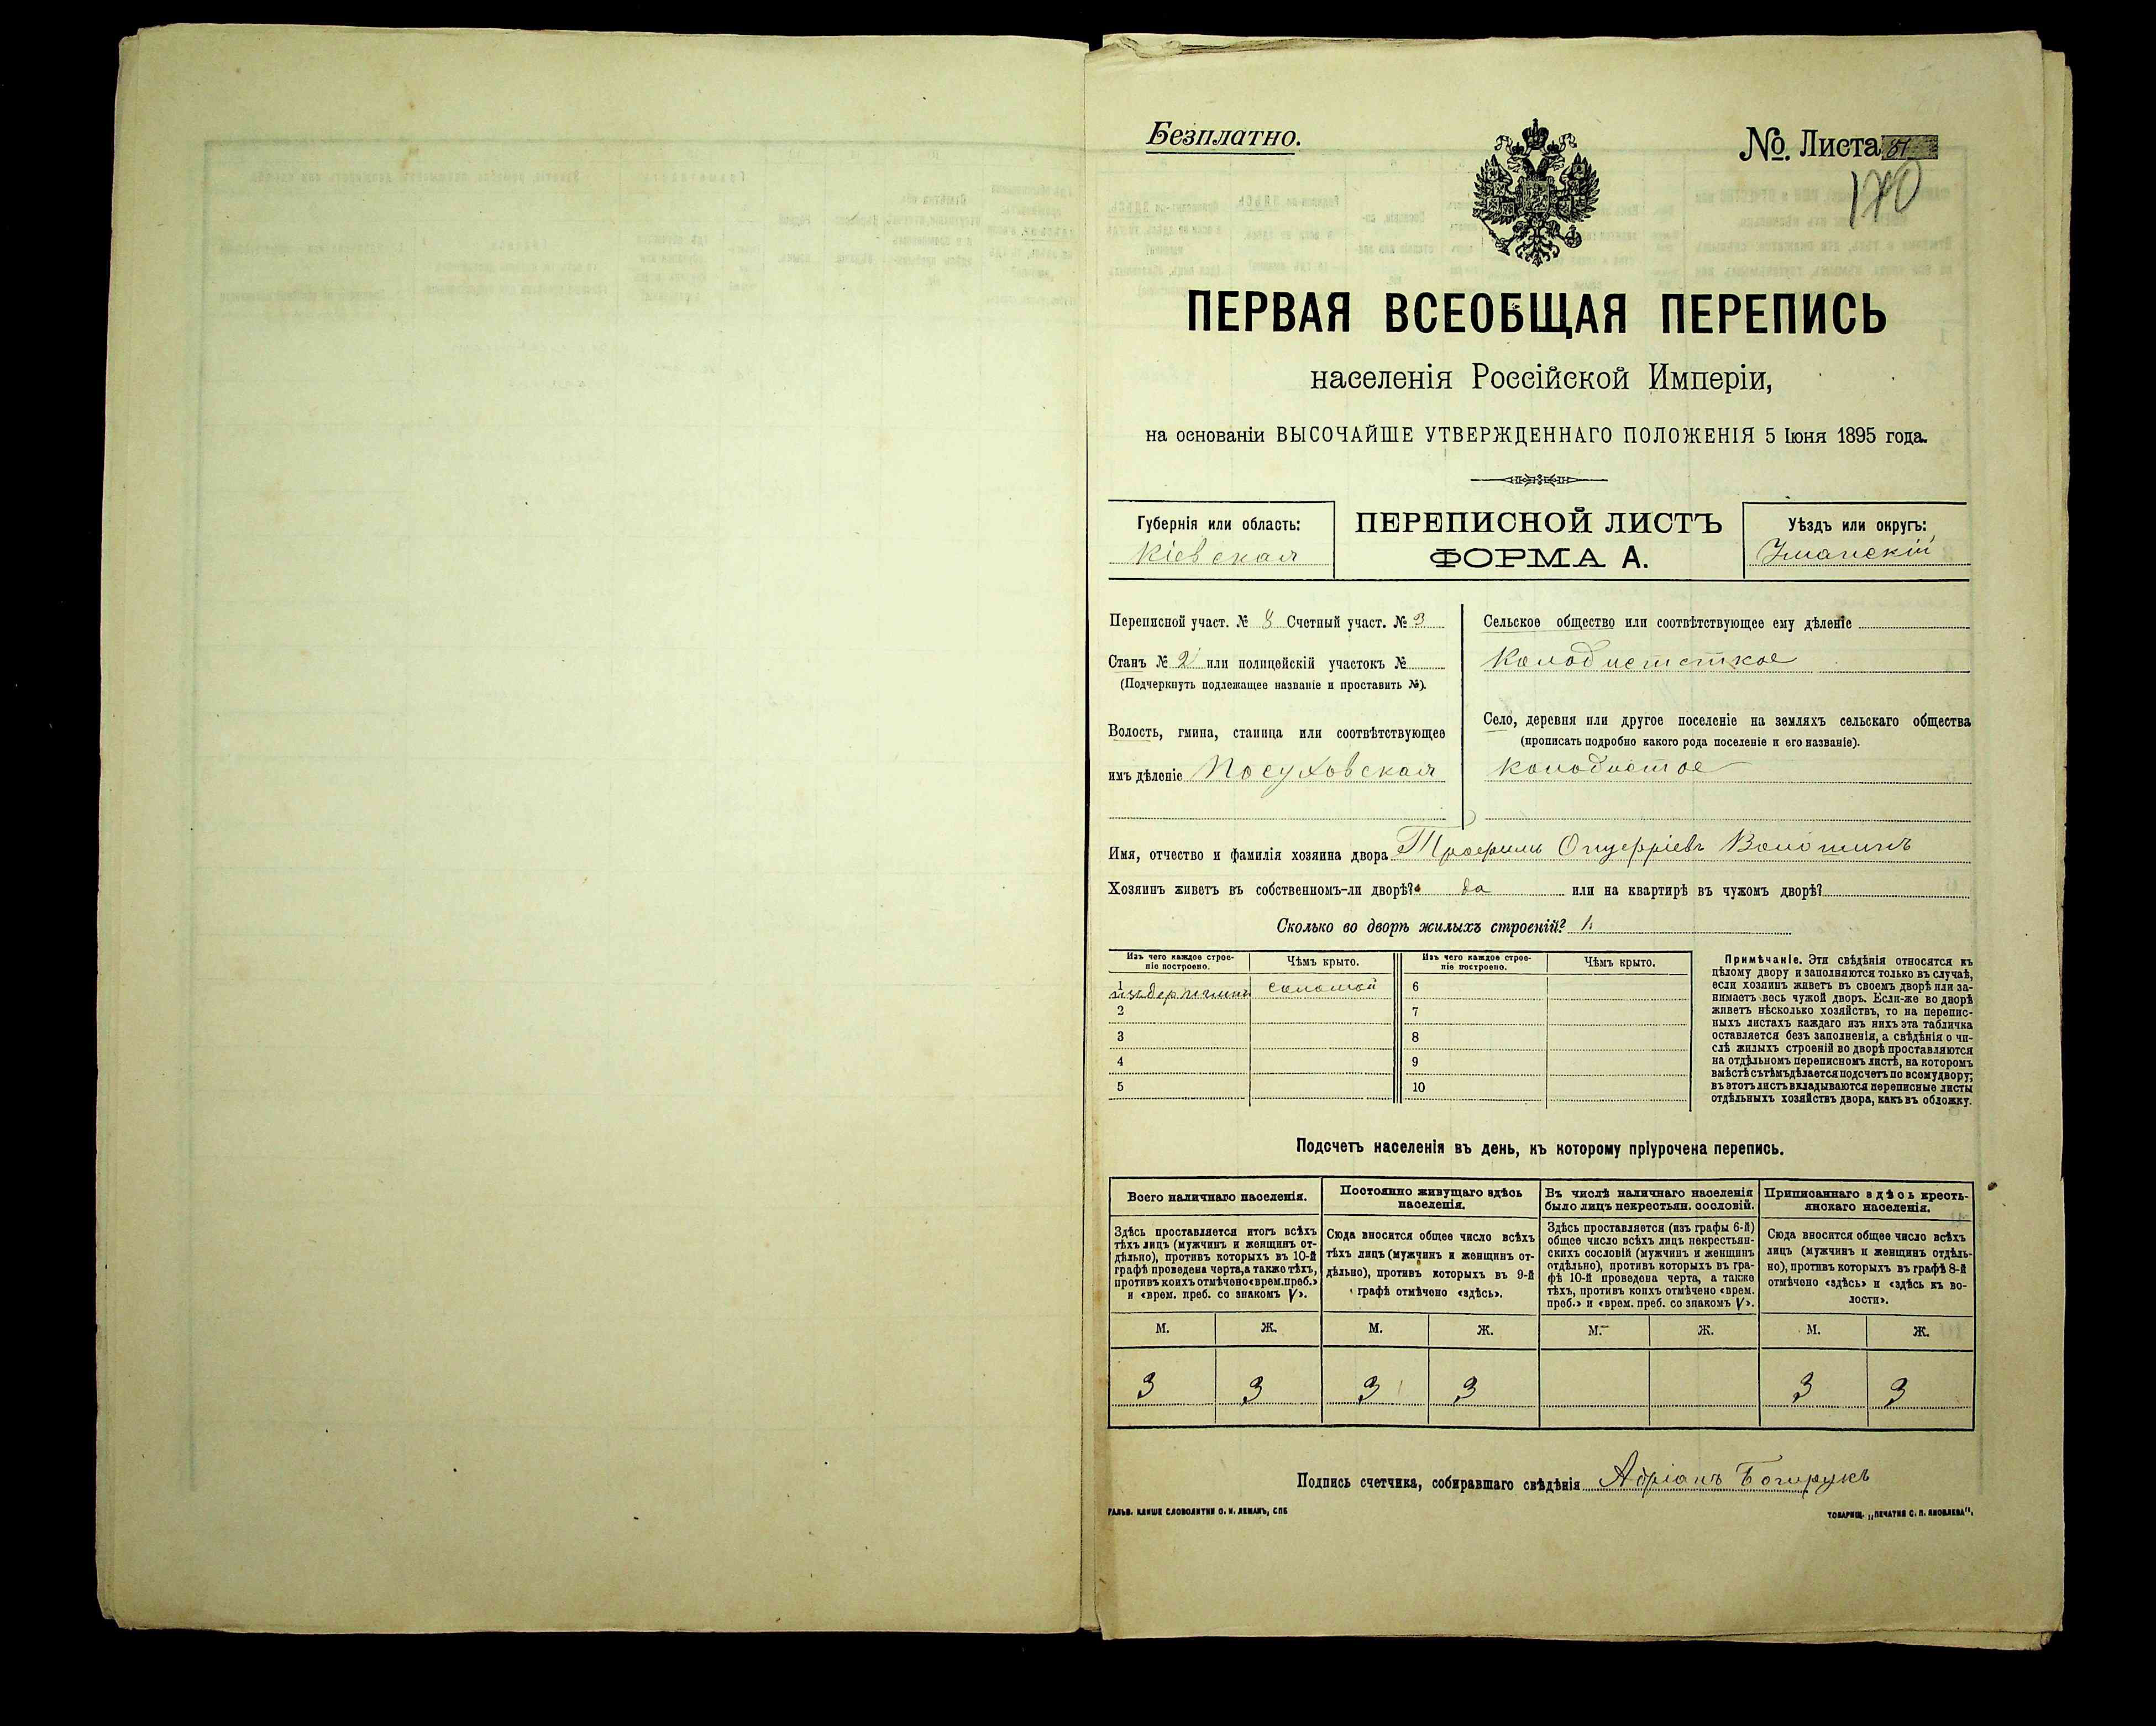 Безплатно.
№. Листа 81
170
ПЕРВАЯ ВСЕОБЩАЯ ПЕРЕПИСЬ
населенія Россійской Имперіи,
на основаніи ВЫСОЧАЙШЕ УТВЕРЖДЕННАГО ПОЛОЖЕНІЯ 5 Іюня 1895 года.
Губернія или область:
Кіевская
ПЕРЕПИСНОЙ ЛИСТЪ
ФОРМА А.
Уѣздъ или округъ:
Уманскій
Переписной участ. № 8 Счетный участ. № 3
Станъ № 2 или полицейскій участокъ №
(Подчеркнуть подлежащее названіе и проставить №).
Волость, гмина, станица или соотвѣтствующее
имъ дѣленіе Посуховская
Сельское общество или соотвѣтствующее ему дѣленіе
Колодистсткое
Село, деревня или другое поселеніе на земляхъ сельскаго общества
(прописать подробно какого рода поселеніе и его названіе).
колодистое
Имя, отчество и фамилія хозяина двора Трофимъ Онуфріевъ Волошинъ
Хозяинъ живетъ въ собственномъ-ли дворѣ? да или на квартирѣ въ чужомъ дворѣ?
Сколько во дворѣ жилыхъ строеній? 1
Изъ чего каждое строе-
ніе построено.
Чѣмъ крыто.
Изъ чего каждое строе-
ніе построено.
Чѣмъ крыто.
1 соломой 6
2 7
3 8
4 9
5 10
Примѣчаніе. Эти свѣдѣнія относятся къ
цѣлому двору и заполняются только въ случаѣ,
если хозяинъ живетъ въ своемъ дворѣ или за-
нимаетъ весь чужой дворъ. Если-же во дворѣ
живетъ нѣсколько хозяйствъ, то на перепис-
ныхъ листахъ каждаго изъ нихъ эта табличка
оставляется безъ заполненія, а свѣдѣнія о чи-
слѣ жилыхъ строеній во дворѣ проставляются
на отдѣльномъ переписномъ листѣ, на которомъ
вмѣстѣ съ тѣмъ дѣлается подсчетъ по всему двору;
въ этотъ листъ вкладываются переписные листы
отдѣльныхъ хозяйствъ двора, какъ въ обложку.
Подсчетъ населенія въ день, къ которому пріурочена перепись.
Всего наличнаго населенія.
Здѣсь проставляется итогъ всѣхъ
тѣхъ лицъ (мужчинъ и женщинъ от-
дѣльно), противъ которыхъ въ 10-й
графѣ проведена черта, а также тѣхъ,
противъ коихъ отмѣчено «врем. преб.»
и «врем. преб. со знакомъ V».
Постоянно живущаго здѣсь
населенія.
Сюда вносится общее число всѣхъ
тѣхъ лицъ (мужчинъ и женщинъ от-
дѣльно), противъ которыхъ въ 9-й
графѣ отмѣчено «здѣсь».
Въ числѣ наличнаго населенія
было лицъ некрестьян. сословій.
Здѣсь проставляется (изъ графы 6-й)
общее число всѣхъ лицъ некрестьян-
скихъ сословій (мужчинъ и женщинъ
отдѣльно), противъ которыхъ въ гра-
фѣ 10-й проведена черта, а также
тѣхъ, противъ коихъ отмѣчено «врем.
преб.» и «врем. преб. со знакомъ V».
Приписаннаго здѣсь кресть-
янскаго населенія.
Сюда вносится общее число всѣхъ
лицъ (мужчинъ и женщинъ отдѣль-
но), противъ которыхъ въ графѣ 8-й
отмѣчено «здѣсь» и «здѣсь къ во-
лости».
М. Ж. М. Ж. М. Ж. М. Ж.
3 3 3 3 3 3
Подпись счетчика, собиравшаго свѣдѣнія Адріанъ
ГАЛЬВ. КЛИШЕ СЛОВОЛИТНИ О. И. ЛЕМАНЪ, СПБ
ТОВАРИЩ. „ПЕЧАТНЯ С. П. ЯКОВЛЕВА".